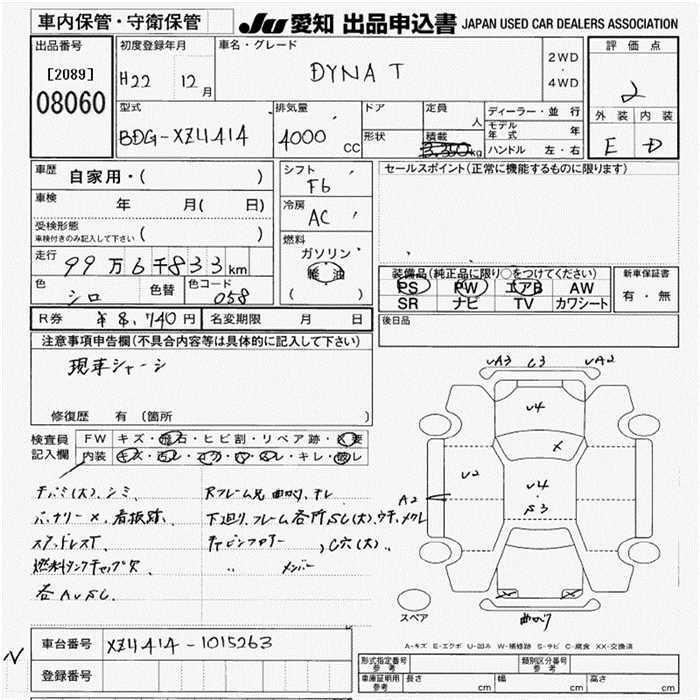 車内保管・守衛保管
JU 愛知 出品申込書 JAPAN USED CAR DEALERS ASSOCIATION
出品番号
[2089]
08060
初度登録年月
H22 12月
車名・グレード
DYNA T
2WD
・
4WD
評価点
2
外装 内装
E D
型式
BDG-XZU414
排気量
4000 CC
ドア
形状
定員 人
積載 3,350 kg
ディーラー・並行
モデル年式 年
ハンドル 左・右
車歴
自家用・( )
車検
年 月( 日)
受検形態
車検付きのみ記入して下さい ( )
走行
99万6千833km
色
シロ
色替
色コード
058
シフト
F6
冷房
AC
燃料
ガソリン
軽油
( )
セールスポイント(正常に機能するものに限ります)
装備品(純正品に限り○をつけてください)
PS PW エアB AW
SR ナビ TV カワシート
新車保証書
有・無
R券 ¥8,740円
名変期限 月 日
後日品
注意事項申告欄(不具合内容等は具体的に記入して下さい)
現車シャーシ
修復歴 有 (箇所 )
検査員
記入欄
FW キズ・飛石・ヒビ割・リペア跡・×要
内装
キレ
シミ
バッテリー×、看板跡
スタッドレスT
燃料タンクキャップ欠
下廻り、フレーム各所SC(大)
〃 メンバー
C穴(大)
UA3 C3 UA2
U4
×
U2
U4
S3
A2
× ×
曲がり
スペア
A-キズ E-エクボ U-凹み W-補修跡 S-サビ C-腐食 XX-交換済
車台番号
XZU414-1015263
登録番号
形式指定番号
参考
類別区分番号
参考
車庫証明用
参考
長さ cm 幅 cm 高さ cm